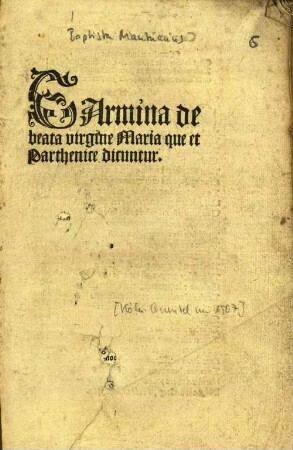 Baptista Mantuanus
6
CArmina de
beata virgine Maria que et
Parthenice dicuntur.
[Köln Quentel um 1507]